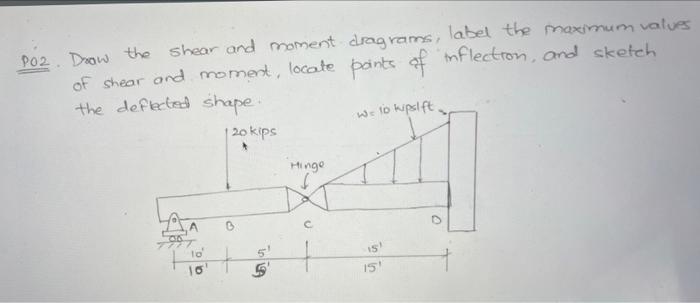 P02. Draw the shear and moment diagrams, label the maximum values
of shear and moment, locate points of inflection, and sketch
the deflected shape.
w= 10 kips/ft
20 kips
Hinge
A B C D
10' 5' 15'
10' 5' 15'